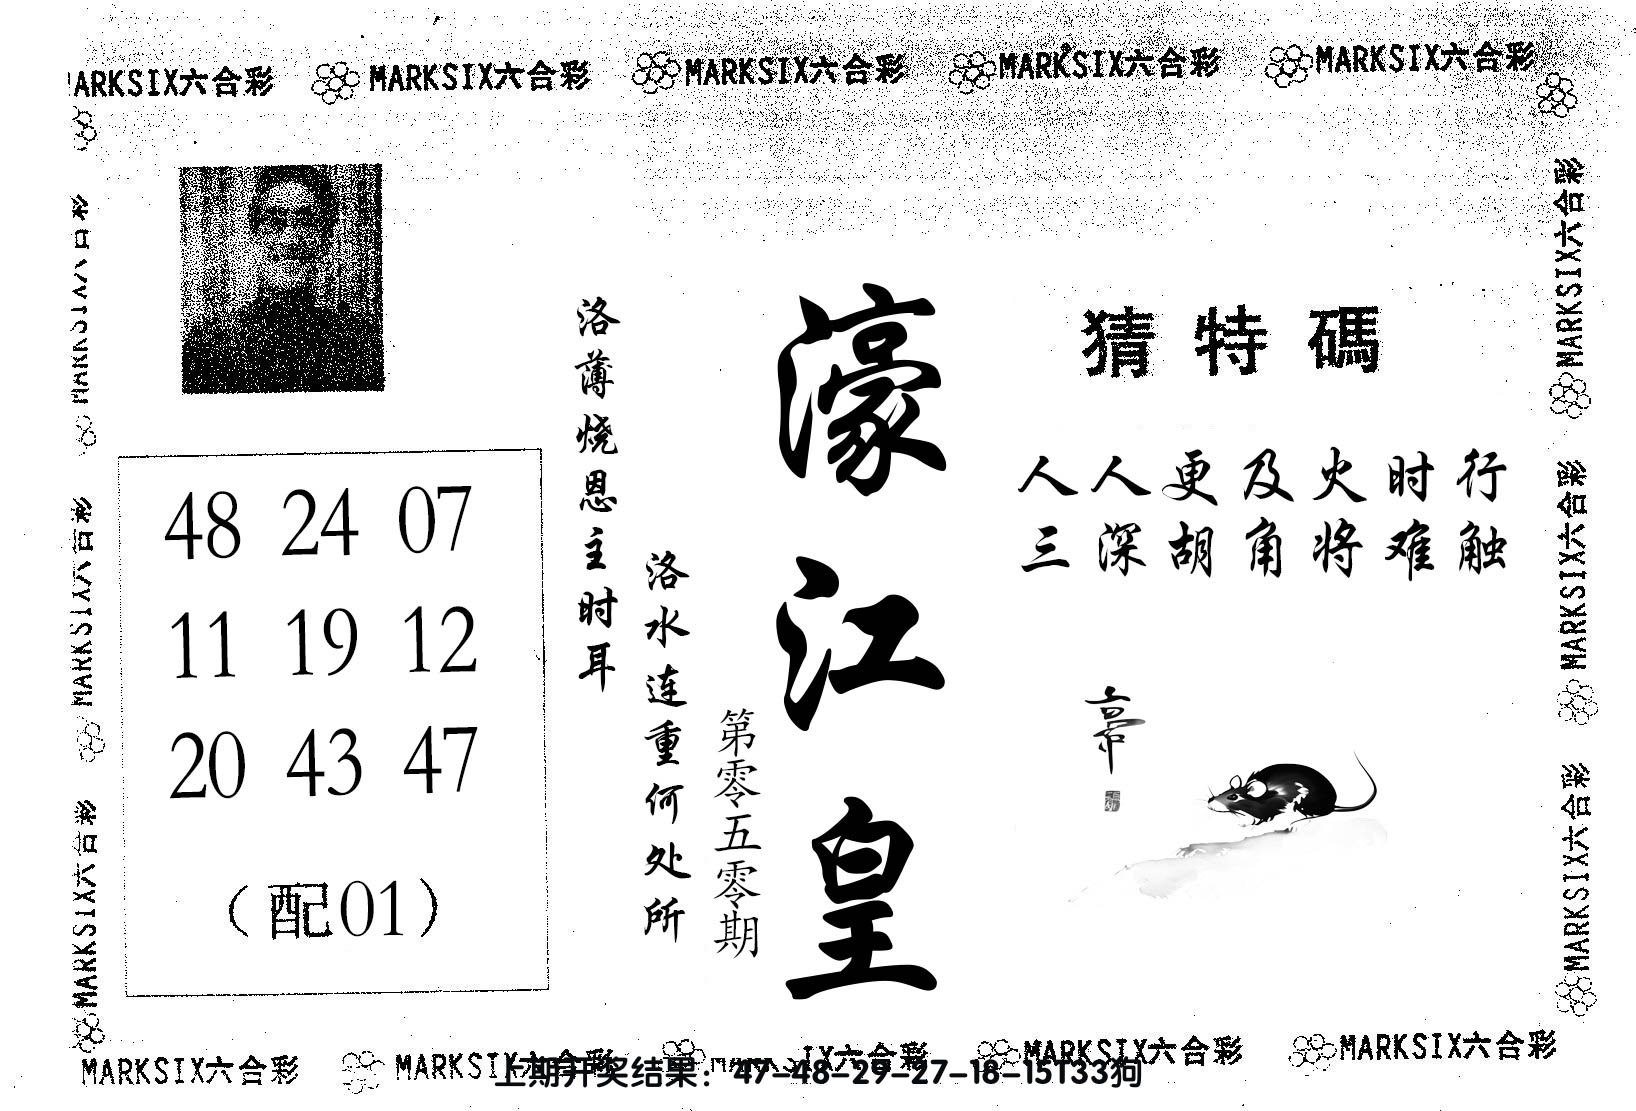 MARKSIX六合彩 MARKSIX六合彩 MARKSIX六合彩 MARKSIX六合彩 MARKSIX六合彩
猜特碼
人人更及火时行
三深胡角将难触
濠江皇
第零五零期
洛水连重何处所
洛薄烧恩主时耳
48 24 07
11 19 12
20 43 47
（配01）
MARKSIX六合彩
MARKSIX六合彩
MARKSIX六合彩
MARKSIX六合彩
MARKSIX六合彩
MARKSIX六合彩
MARKSIX六合彩 MARKSIX六合彩 IX六合彩 MARKSIX六合彩 MARKSIX六合彩
上期开奖结果：47-48-29-27-18-15T33狗